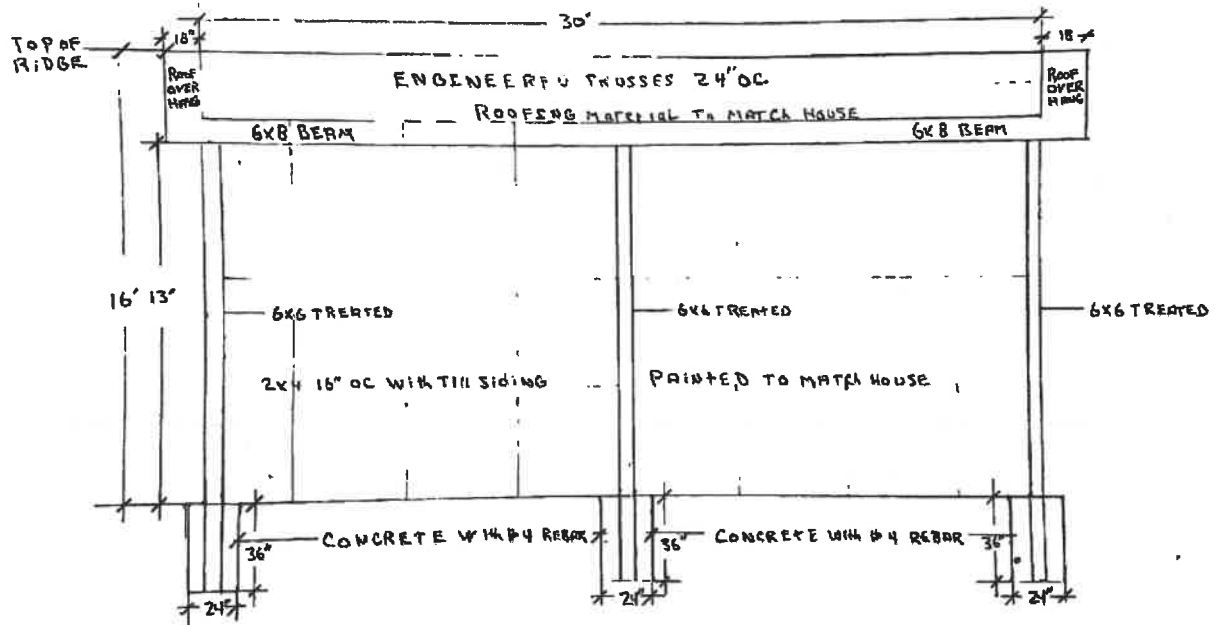 30"
18"
18"
TOP OF
RIDGE
ROOF
OVER
HANG
ENGINEERED TRUSSES 24" OC
ROOF
OVER
HANG
ROOFING MATERIAL TO MATCH HOUSE
6X8 BEAM
6X8 BEAM
16' 13"
6X6 TREATED
6X6 TREATED
6X6 TREATED
2X4 16" OC WITH T111 SIDING
PAINTED TO MATCH HOUSE
CONCRETE WITH #4 REBAR
CONCRETE WITH #4 REBAR
36"
36"
36"
24"
24"
24"